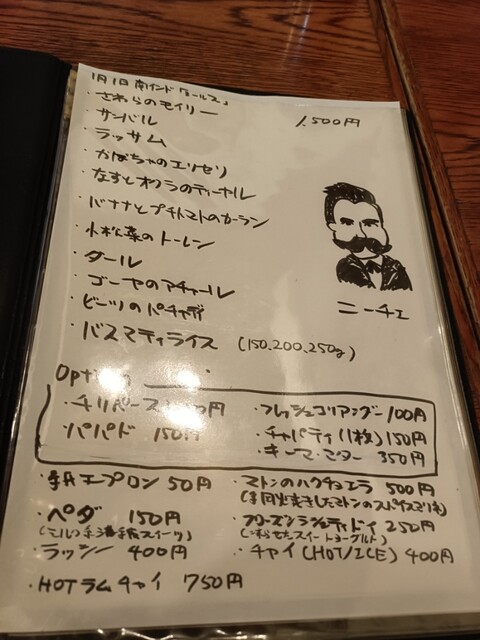 1月1日 南インド「ミールス」
・さわらのモイリー 1,500円
・サンバル
・ラッサム
・かぼちゃのエリセリ
・なすとオクラのティーヤル
・バナナとプチトマトのカーラン
・小松菜のトーレン
・ダール
・ゴーヤのアチャール
・ビーツのパチャディ
・バスマティライス (150,200,250g)
ニーチェ
Option
・チリペースト 円
・フレッシュコリアンダー 100円
・パパド 150円
・チャパティ(1枚) 150円
・キーママター 350円
・エプロン 50円
・マトンのハクチョエラ 500円
・ペダ 150円
(ミルク 手 スイーツ)
・フローズンラジェティドイ 250円
(スイートヨーグルト)
・ラッシー 400円
・チャイ(HOT/ICE) 400円
・HOTラムチャイ 750円